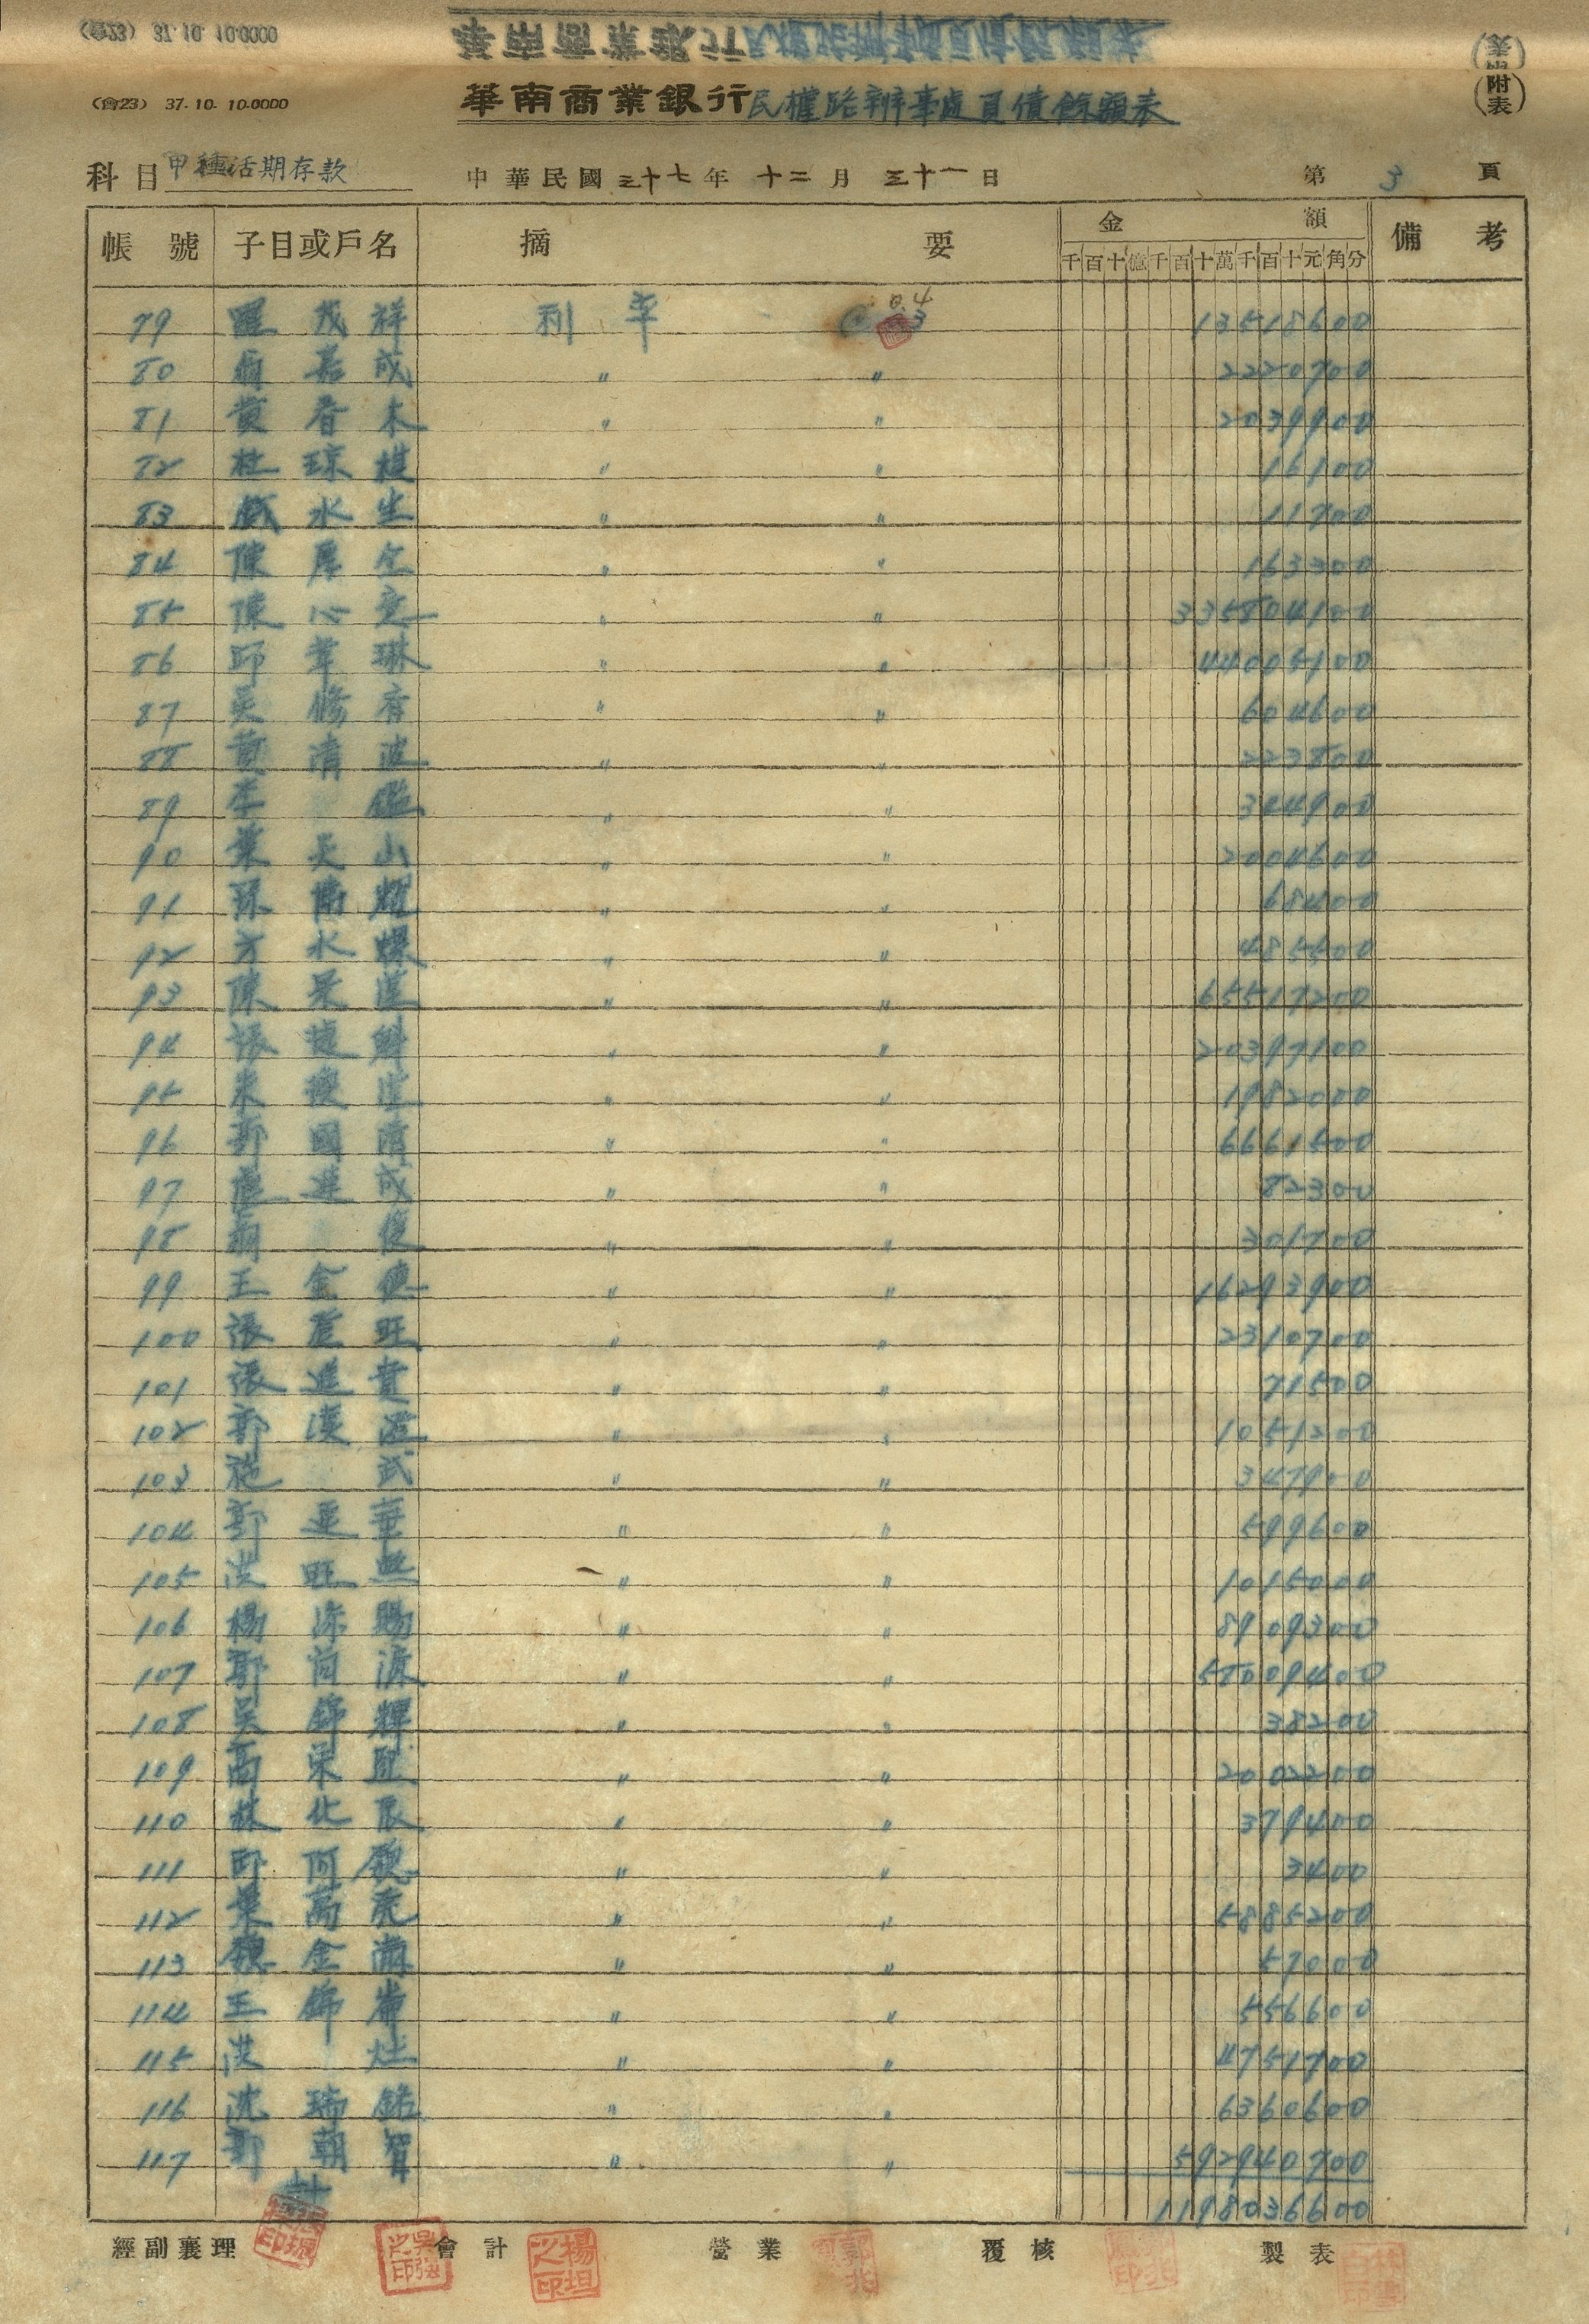 (會23) 37.10.10.0000
華南商業銀行民權路辦事處負債餘額表
(附表)
科目 甲種活期存款 中華民國三十七年十二月三十一日 第3頁
帳號 子目或戶名 摘要 金額 備考
千百十億千百十萬千百十元角分
79 羅茂祥 利率 13518600
80 嘉成 〃 〃 2220700
81 黃春木 〃 〃 2039900
82 杜琼棋 〃 〃 16100
83 戲水生 〃 〃 11700
84 陳厚全 〃 〃 163300
85 陳心意 〃 〃 335804100
86 邱葦琳 〃 〃 44005100
87 吳修香 〃 〃 604600
88 黃清波 〃 〃 223800
89 李鑑 〃 〃 344900
90 葉天山 〃 〃 2004600
91 孫南耀 〃 〃 68400
92 方水 〃 〃 485500
93 陳 〃 〃 65517200
94 張 〃 〃 20397100
95 朱 〃 〃 1982000
96 郭國清 〃 〃 6661500
97 進成 〃 〃 82300
98 〃 〃 301700
99 王金德 〃 〃 16293900
100 張登旺 〃 〃 2310700
101 張進貴 〃 〃 71500
102 郭漢 〃 〃 1051200
103 施武 〃 〃 347900
104 郭華 〃 〃 599600
105 洪旺 〃 〃 1015000
106 楊添賜 〃 〃 8909300
107 郭源 〃 〃 58009400
108 吳錦輝 〃 〃 38200
109 高榮 〃 〃 2002200
110 林化 〃 〃 379400
111 邱阿 〃 〃 3400
112 葉萬虎 〃 〃 5885200
113 魏金 〃 〃 57000
114 王錦 〃 〃 556600
115 洪灶 〃 〃 4751700
116 沈瑞銘 〃 〃 6360600
117 郭朝智 〃 〃 592940700
計 1198036600
經副襄理 會計 營業 覆核 製表
吳強之印 楊坦之印